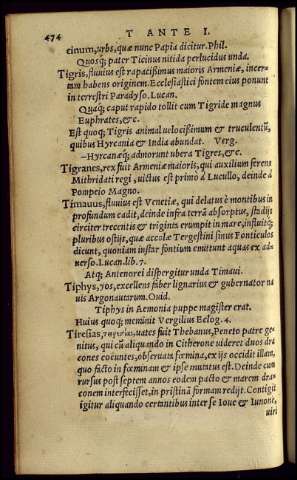 474
T ANTE I.
cinum, urbs, quæ nunc Papia dicitur. Phil.
Quosq; pater Ticinus nitida perlucidus unda.
Tigris, fluuius est rapacißimus maioris Armeniæ, incer-
tam habens originem. Ecclesiastici fontem eius ponunt
in terrestri Paradyso. Lucan.
Quaq; caput rapido tollit cum Tigride magnus
Euphrates, &c.
Est quoq; Tigris animal uelocißimum & truculentū,
quibus Hyrcania & India abundat. Verg.
–Hyrcanæq; admorunt ubera Tigres, &c.
Tigranes, rex fuit Armeniæ maioris, qui auxilium ferens
Mithridati regi, uictus est primò à Lucullo, deinde à
Pompeio Magno.
Timauus, fluuius est Venetiæ, qui delatus è montibus in
profundum cadit, deinde infra terrā absorptus, stadijs
circiter trecentis & triginta erumpit in mare, influitq;
pluribus ostijs, quæ accolæ Tergestini sinus Fonticulos
dicunt, quoniam instar fontium emittunt aquas ex ad-
uerso. Lucan. lib. 7.
Atq; Antenorei dispergitur unda Timaui.
Tiphys, yos, excellens faber lignarius & gubernator na
uis Argonautarum. Ouid.
Tiphys in Aemonia puppe magister erat.
Huius quoq; meminit Vergilius Eclog. 4.
Tiresias, uates fuit Thebanus, Peneto patre ge-
nitus, qui cū aliquando in Citherone uideret duos dra
cones coëuntes, obseruata fœmina, ex ijs occidit illam,
quo facto in fœminam & ipse mutatus est. Deinde cum
rursus post septem annos eodem pacto & marem dra-
conem interfecisset, in pristinā formam redijt. Contigit
igitur aliquando certantibus inter se Ioue & Iunone,
uiri